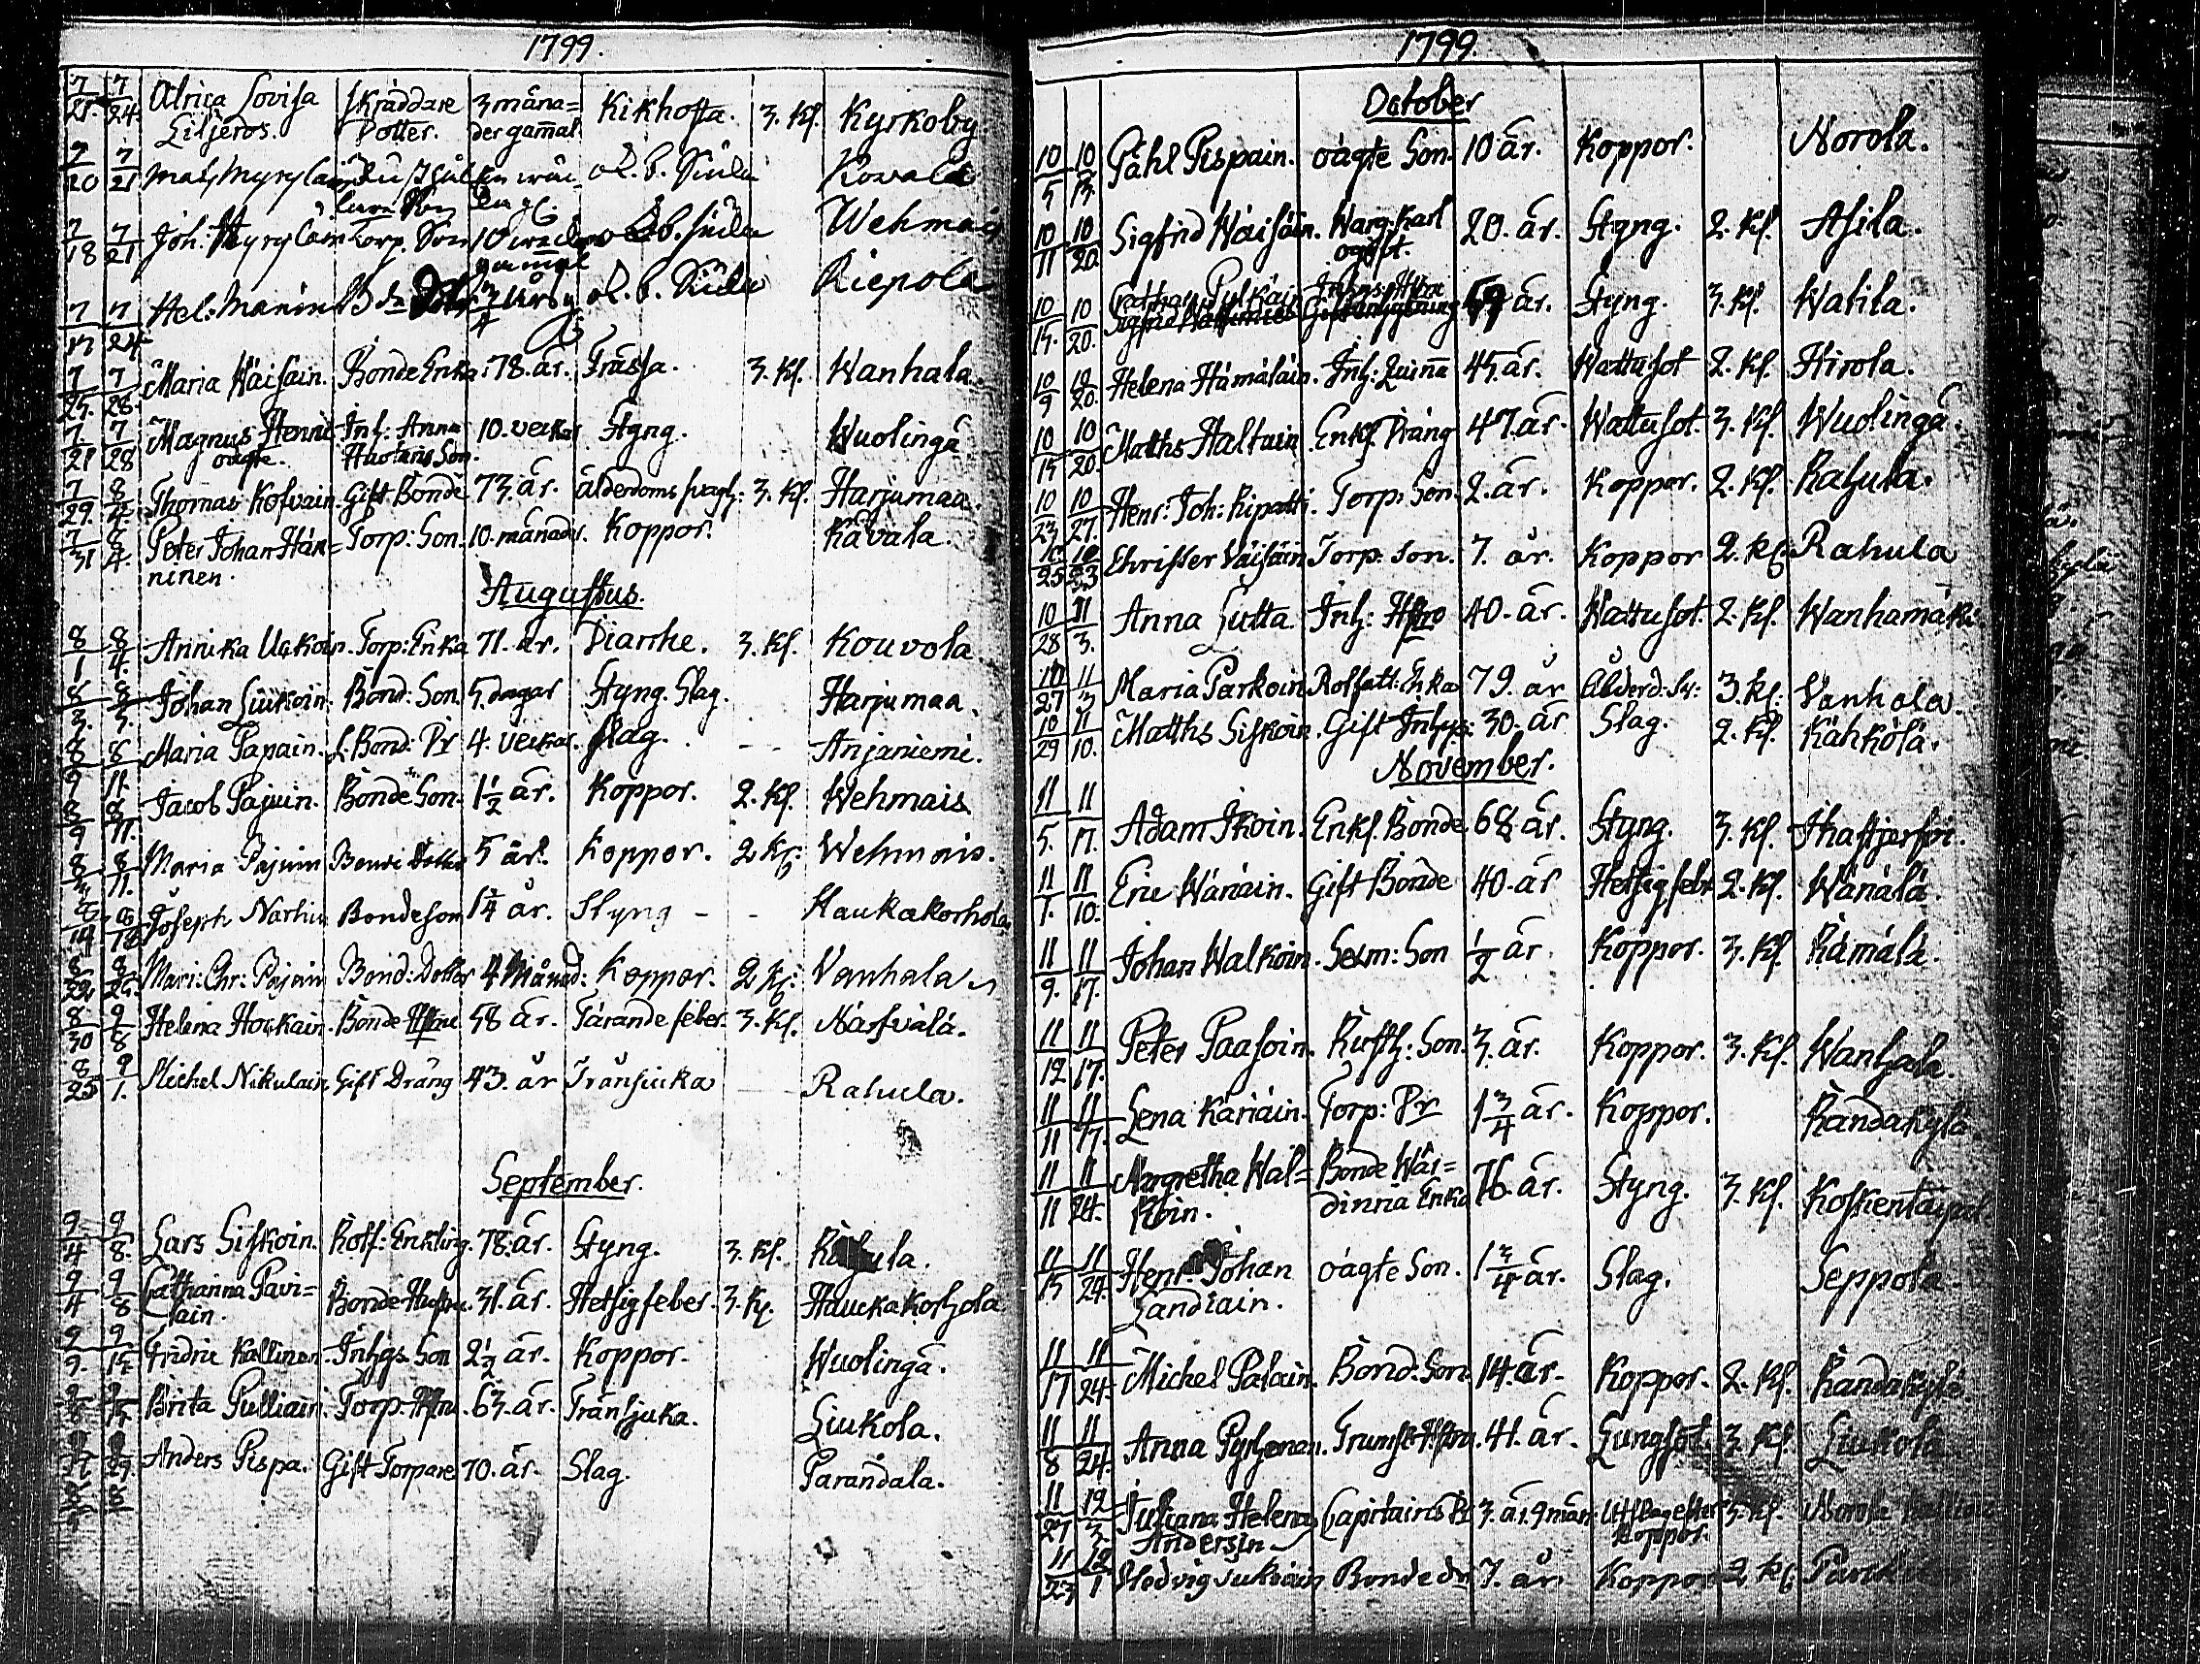 1799.
7/21. 7/24. Ulrica Lovisa Liljeros. Skräddare Dotter. 3 måna=der gam̄al. Kikhosta. 3. Kl. Kyrkoby.
7/20 7/21 Koval
7/18 7/21 Joh: Torp. Son 10 Wehmais
7/17 7/24 Hel: ol. b. Siepola
7/25. 7/28. Maria Wäisäin. Bonde Enka. 78. år. Frässa. 3. Kl. Wanhala.
7/21 7/28 Magnus oägte. Inh: Anna Huotaris Son. 10. veckor Styng. Wuolingå
7/29. 8/4. Thomas Kofvain. Gift Bonde 73. år. ålderdoms 3. Kl. Harjumaa.
7/31 8/4. Peter Johan Hän=ninen. Torp: Son. 10. månader. Koppor. Kåvala.
Augustus.
8/1 8/4. Annika Torp: Enka 71. år. Diarrhe. 3. Kl. Kouvola
8/3. 8/5. Johan Liukoin. Bond: Son. 5. dagar Styng. Slag. Harjumaa.
8/9 8/11. Maria Papain. Bond: Dr 4. veckor. Slag. - - Anjaniemi.
8/9 8/11. Jacob Pajuin. Bonde Son. 1 1/2 år. Koppor. 2. Kl. Wehmais
8/11. Maria Pajuin 5 år. Koppor. 2 Kl: Wehmais.
8/14 8/18 Joseph Narhin Bondeson 1 1/4 år. Styng - - Haukakorhola
8/22 8/25. Mari: Chr: Pajuin Bond: Dotter 4 Månad: Koppor. 2 Kl: Vanhala
8/30 9/8 Helena Hockain. Bonde Hstru 58 år. Tärande feber. 3. Kl. Närfvälä.
8/25 9/1. Michel Nikulain. Gift Dräng 43. år Trånsiuka - Rahula.
September.
9/4 9/8. Lars Siskoin. Rotf: Enkling. 78. år. Styng. 3. Kl. Rahula.
9/4 9/8 Catharina Pavi=lain. Bonde Hustru. 31. år. Hetsigfeber. 3. Kl. Hauckakorhola
9/9. 9/15. Fridric Kallinen. Inhgs Son 2 1/2 år. Koppor. Wuolingå.
Brita Pulliain. Torp. Hstru 63. år. Trånsjuka. Liukola.
Anders Pispa. Gift Torpare 70. år. Slag. Parandala.
1799.
October
10/5 10/13. Påhl Pispain. oägte Son. 10 år. Koppor. Norola.
10/11 10/20. Sigfrid Wäisäin. Warg. Karl ogift. 20. år. Styng. 2. Kl. Asila.
10/15. 10/20. 59 år. Styng. 3. Kl. Watila.
10/9 10/20. Helena Hämäläin. Inh: Quin̄a 45. år. Wattusot 2. Kl. Hirola.
10/15 10/20. Matths Haltain. Enkl. Dräng 47. år. Wattusot. 3. Kl. Wuolingå.
10/23 10/27. Henr: Joh: Ripatti. Torp. Son. 2. år. Koppor. 2. Kl. Rahula.
10/25 10/23 Christer Väisäin Torp. son. 7. år. Koppor 2. Kl. Rahula
10/28 11/3. Anna Lutta. Inh: Hstro 40. år. Wattusot. 2. Kl. Wanhamäki
10/27 11/3 Maria Parkoin. Enka 79. år Ålderd: Sv: 3. Kl: Vanhala.
10/29 11/10. Matths Siskoin. Gift Inhys: 30. år Slag. 2. Kl. Kähkölä.
November.
11/5. 11/17. Adam Ikoin. Enkl. Bonde. 68 år. Styng. 3. Kl.
11/1. 11/10. Eric Wänäin. Gift Bonde 40. år Hetsigfebr 2. Kl. Wänälä.
11/9. 11/17. Johan Walkoin. Sexm: Son 1/2 år. Koppor. 3. Kl. Rämälä.
11/12 11/17. Peter Paasoin. Rusth: Son. 3. år. Koppor. 3. Kl. Wanhala.
11/11 11/17. Lena Käriäin. Torp: Dr 1 3/4 år. Koppor. Randakylä.
11/11 11/24. Margretha Wal=koin. Bonde Wär=dinna Enka 76. år. Styng. 3. Kl. Koskentaipal.
11/15 11/24. Henr: Johan Landiain. oägte Son. 1 3/4 år. Slag. Seppola.
11/17 11/24. Michel Palain. Bond: Son. 14. år. Koppor. 2. Kl. Randakylä.
11/8 11/24. Anna Pyyhonen. 41. år. Lungsot. 3. Kl. Liukola
11/27 12/3. Juliana Helena Andersin Capitains Dr 3. år. 9 mån. Utslag efter koppor. 3. Kl. Norola
11/23 12/1 Hedvig Bonde dr 7. år. Koppor 2 Kl: